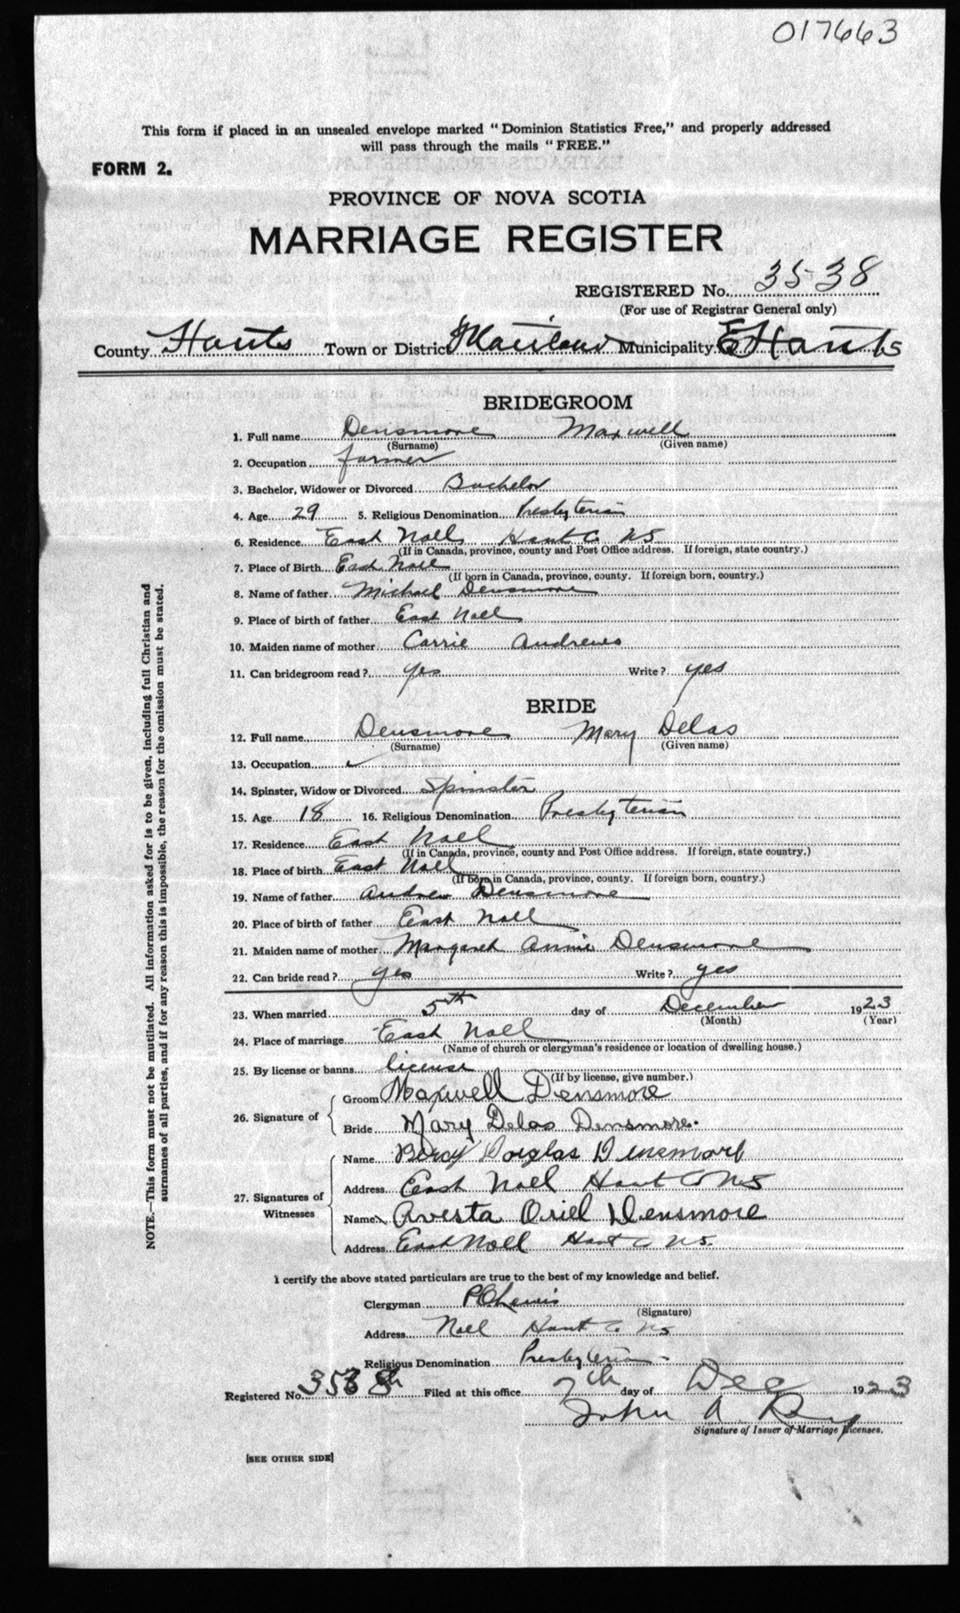 017663
This form if placed in an unsealed envelope marked "Dominion Statistics Free," and properly addressed
will pass through the mails "FREE."
FORM 2.
PROVINCE OF NOVA SCOTIA
MARRIAGE REGISTER
REGISTERED No. 3538
(For use of Registrar General only)
County Hants Town or District Maitland Municipality E Hants
BRIDEGROOM
1. Full name Densmore Maxwell
(Surname) (Given name)
2. Occupation farmer
3. Bachelor, Widower or Divorced Bachelor
4. Age 29 5. Religious Denomination Presbyterian
6. Residence East Noel Hant Co NS
(If in Canada, province, county and Post Office address. If foreign, state country.)
7. Place of Birth East Noel
(If born in Canada, province, county. If foreign born, country.)
8. Name of father Michael Densmore
9. Place of birth of father East Noel
10. Maiden name of mother Carrie Andrews
11. Can bridegroom read? yes Write? yes
BRIDE
12. Full name Densmore Mary Delas
(Surname) (Given name)
13. Occupation ✓
14. Spinster, Widow or Divorced Spinster
15. Age 18 16. Religious Denomination Presbyterian
17. Residence East Noel
(If in Canada, province, county and Post Office address. If foreign, state country.)
18. Place of birth East Noel
(If born in Canada, province, county. If foreign born, country.)
19. Name of father Andrew Densmore
20. Place of birth of father East Noel
21. Maiden name of mother Margaret Annie Densmore
22. Can bride read? yes Write? yes
23. When married 5th day of December 1923
(Month) (Year)
24. Place of marriage East Noel
(Name of church or clergyman's residence or location of dwelling house.)
25. By license or banns license
(If by license, give number.)
26. Signature of
Groom Maxwell Densmore
Bride Mary Delas Densmore.
27. Signatures of Witnesses
Name Percy Douglas Densmore
Address East Noel Hant Co NS
Name Avesta Oriel Densmore
Address East Noel Hant Co NS.
I certify the above stated particulars are true to the best of my knowledge and belief.
Clergyman Lewis
(Signature)
Address Noel Hant Co NS
Religious Denomination Presbyterian
Registered No. Filed at this office 7th day of Dec 1923
John A
Signature of Issuer of Marriage Licenses.
[SEE OTHER SIDE]
NOTE.—This form must not be mutilated. All information asked for is to be given, including full Christian and
surnames of all parties, and if for any reason this is impossible, the reason for the omission must be stated.